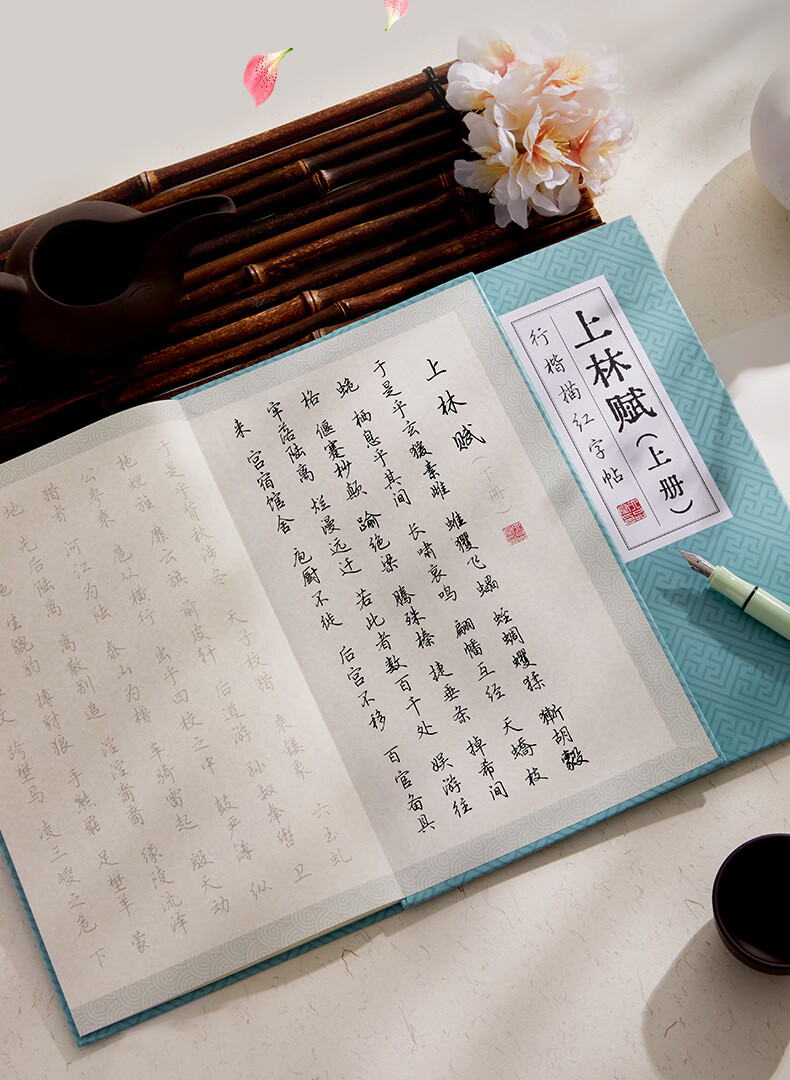 上林赋（上册）
行楷描红字帖
上林赋（下册）
于是乎玄猨素雌 蜼玃飞蠝 蛭蜩蠼猱 獑胡豰
蛫 栖息乎其间 长啸哀鸣 翩幡互经 夭蟜枝
格 偃蹇杪颠 踰绝梁 腾殊榛 捷垂条 掉希间
牢落陆离 烂漫远迁 若此者数百千处 娱游往
来 宫宿馆舍 庖厨不徙 后宫不移 百官备具
于是乎背秋涉冬 天子校猎 乘镂象 六玉虬
拖蜺旌 靡云旗 前皮轩 后道游 孙叔奉辔 卫
公参乘 扈从横行 出乎四校之中 鼓严簿 纵
猎者 河江为阹 泰山为橹 车骑雷起 殷天动
地 先后陆离 离散别追 淫淫裔裔 缘陵流泽
施 生貔豹 搏豺狼 手熊罴 足壄羊 蒙
文 跨壄马 凌三嵕之危 下